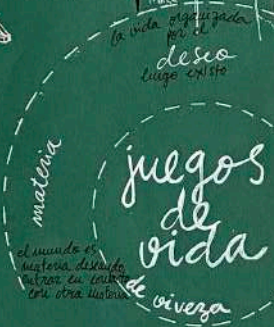 la vida organizada
por el
deseo
luego existo
materia
juegos
de
vida
de viveza
el mundo es
materia deseando
entrar en contacto
con otra materia